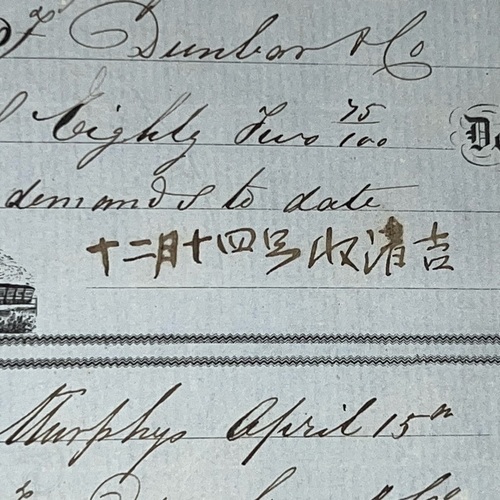 F Dunbar & Co
Eighty Two 75/100 Do
demands to date
十二月十四号收清吉
Murphys April 15th